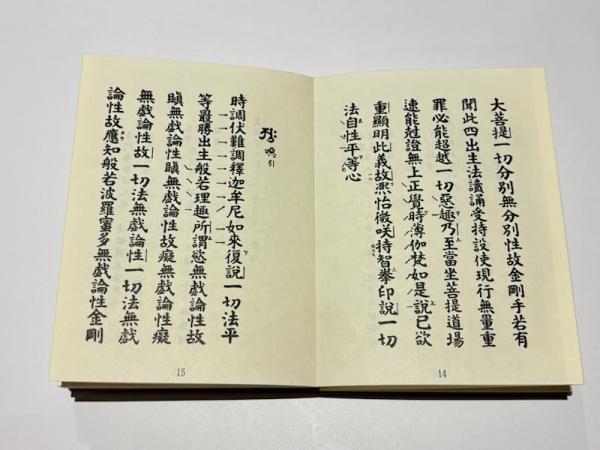 大菩提一切分別無分別性故金剛手若有
聞此四出生法讀誦受持設使現行無量重
罪必能超越一切惡趣乃至當坐菩提道場
速能尅證無上正覺時薄伽梵如是說已欲
重顯明此義故熈怡微咲持智拳印說一切
法自性平等心
14
引
時調伏難調釋迦牟尼如來復說一切法平
等最勝出生般若理趣所謂慾無戲論性故
瞋無戲論性瞋無戲論性故癡無戲論性癡
無戲論性故一切法無戲論性一切法無戲
論性故應知般若波羅蜜多無戲論性金剛
15